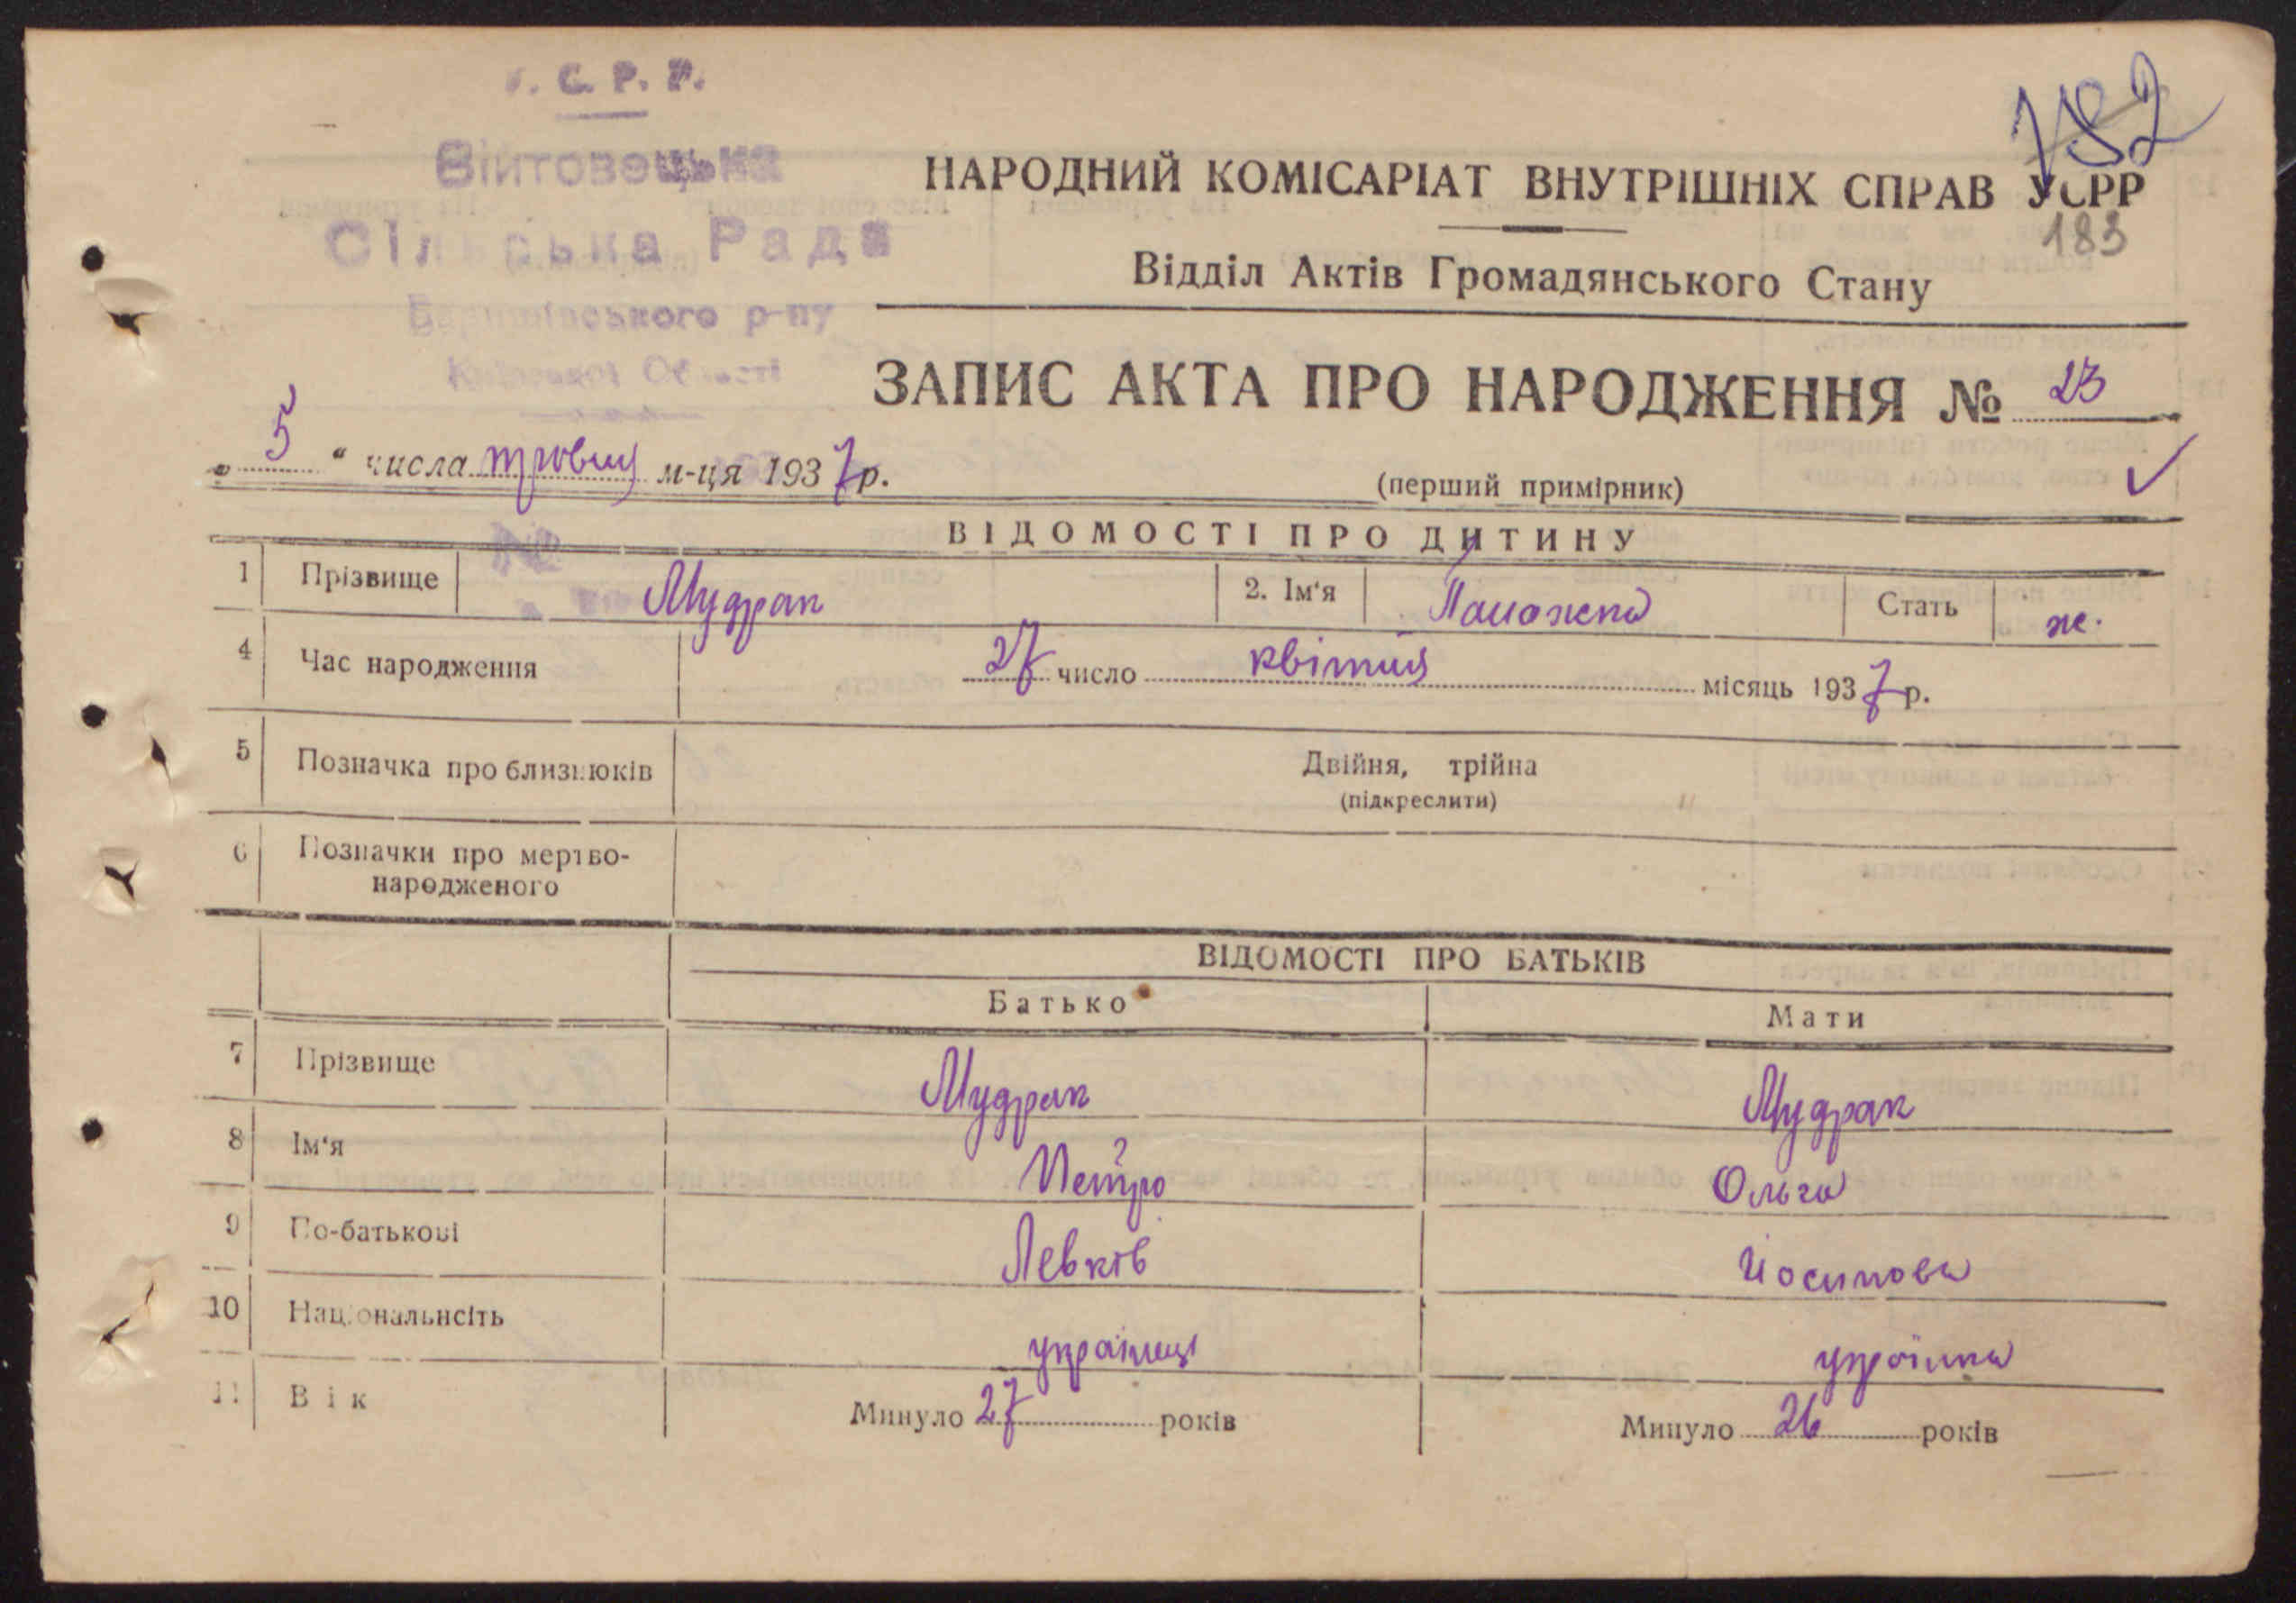 У. С. Р. Р.
Війтовецька
Сільська Рада
Баришівського р-ну
Київської Області
182
183
НАРОДНИЙ КОМІСАРІАТ ВНУТРІШНІХ СПРАВ УСРР
Відділ Актів Громадянського Стану
ЗАПИС АКТА ПРО НАРОДЖЕННЯ № 23
„ 5 “ числа травня м-ця 1937 р.
(перший примірник)
ВІДОМОСТІ ПРО ДИТИНУ
1 Прізвище Мудрак 2. Ім'я Стать ж.
4 Час народження 27 число квітня місяць 1937 р.
5 Позначка про близнюків Двійня, трійна
(підкреслити)
6 Позначки про мертво-
народженого
ВІДОМОСТІ ПРО БАТЬКІВ
Батько Мати
7 Прізвище Мудрак Мудрак
8 Ім'я Петро Ольга
9 По-батькові Левків Йосипова
10 Національнсіть українець українка
11 Вік Минуло 27 років Минуло 26 років